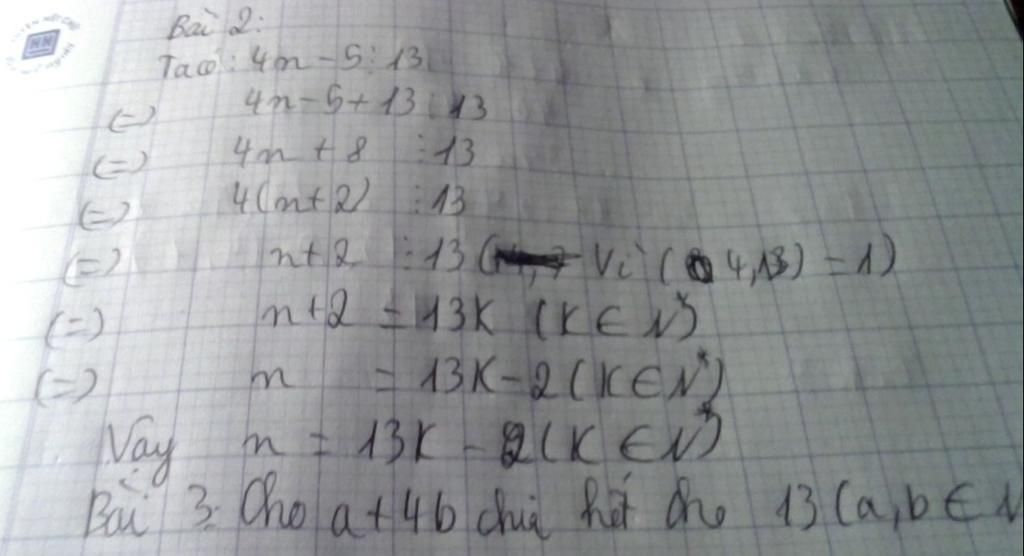 Bài 2:
Ta có: 4n - 5 ⋮ 13
(=) 4n - 5 + 13 ⋮ 13
(=) 4n + 8 ⋮ 13
(=) 4(n+2) ⋮ 13
(=) n+2 ⋮ 13 ( Vì (4,13) = 1)
(=) n+2 = 13K (K ∈ N*)
(=) n = 13K - 2 (K ∈ N*)
Vay n = 13K - 2 (K ∈ N*)
Bài 3: Cho a + 4b chia hết cho 13 (a, b ∈ N